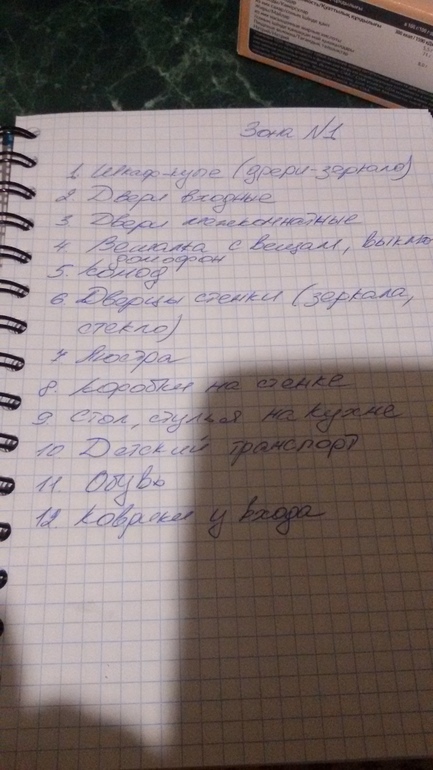 Зона N1
1. Шкаф-купе (двери-зеркало)
2. Двери входные
3. Двери межкомнатные
4. Вешалка с вещам, выклю
домофон
5. Комод
6. Дверцы стенки (зеркала,
стекло)
7. Люстра
8. Коробки на стенке
9. Стол, стулья на кухне
10. Детский транспорт
11. Обувь
12. Коврики у входа